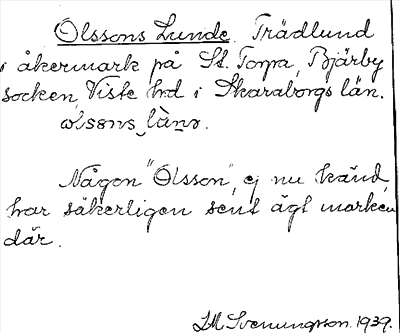 Olssons Lunde. Trädlund
i åkermark på St. Torpa, Bjärby
socken, Viste hd i Skaraborgs län.
Någon "Olsson", ej nu känd,
har säkerligen sent ägt marken
där.
I.M. Svenungsson. 1939.